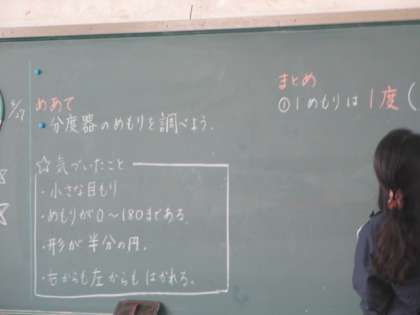 めあて
・分度器のめもりを調べよう.
☆気づいたこと
・小さな目もり
・めもりが0〜180まである.
・形が半分の円.
・右からも左からもはかれる.
まとめ
①1めもりは1度(